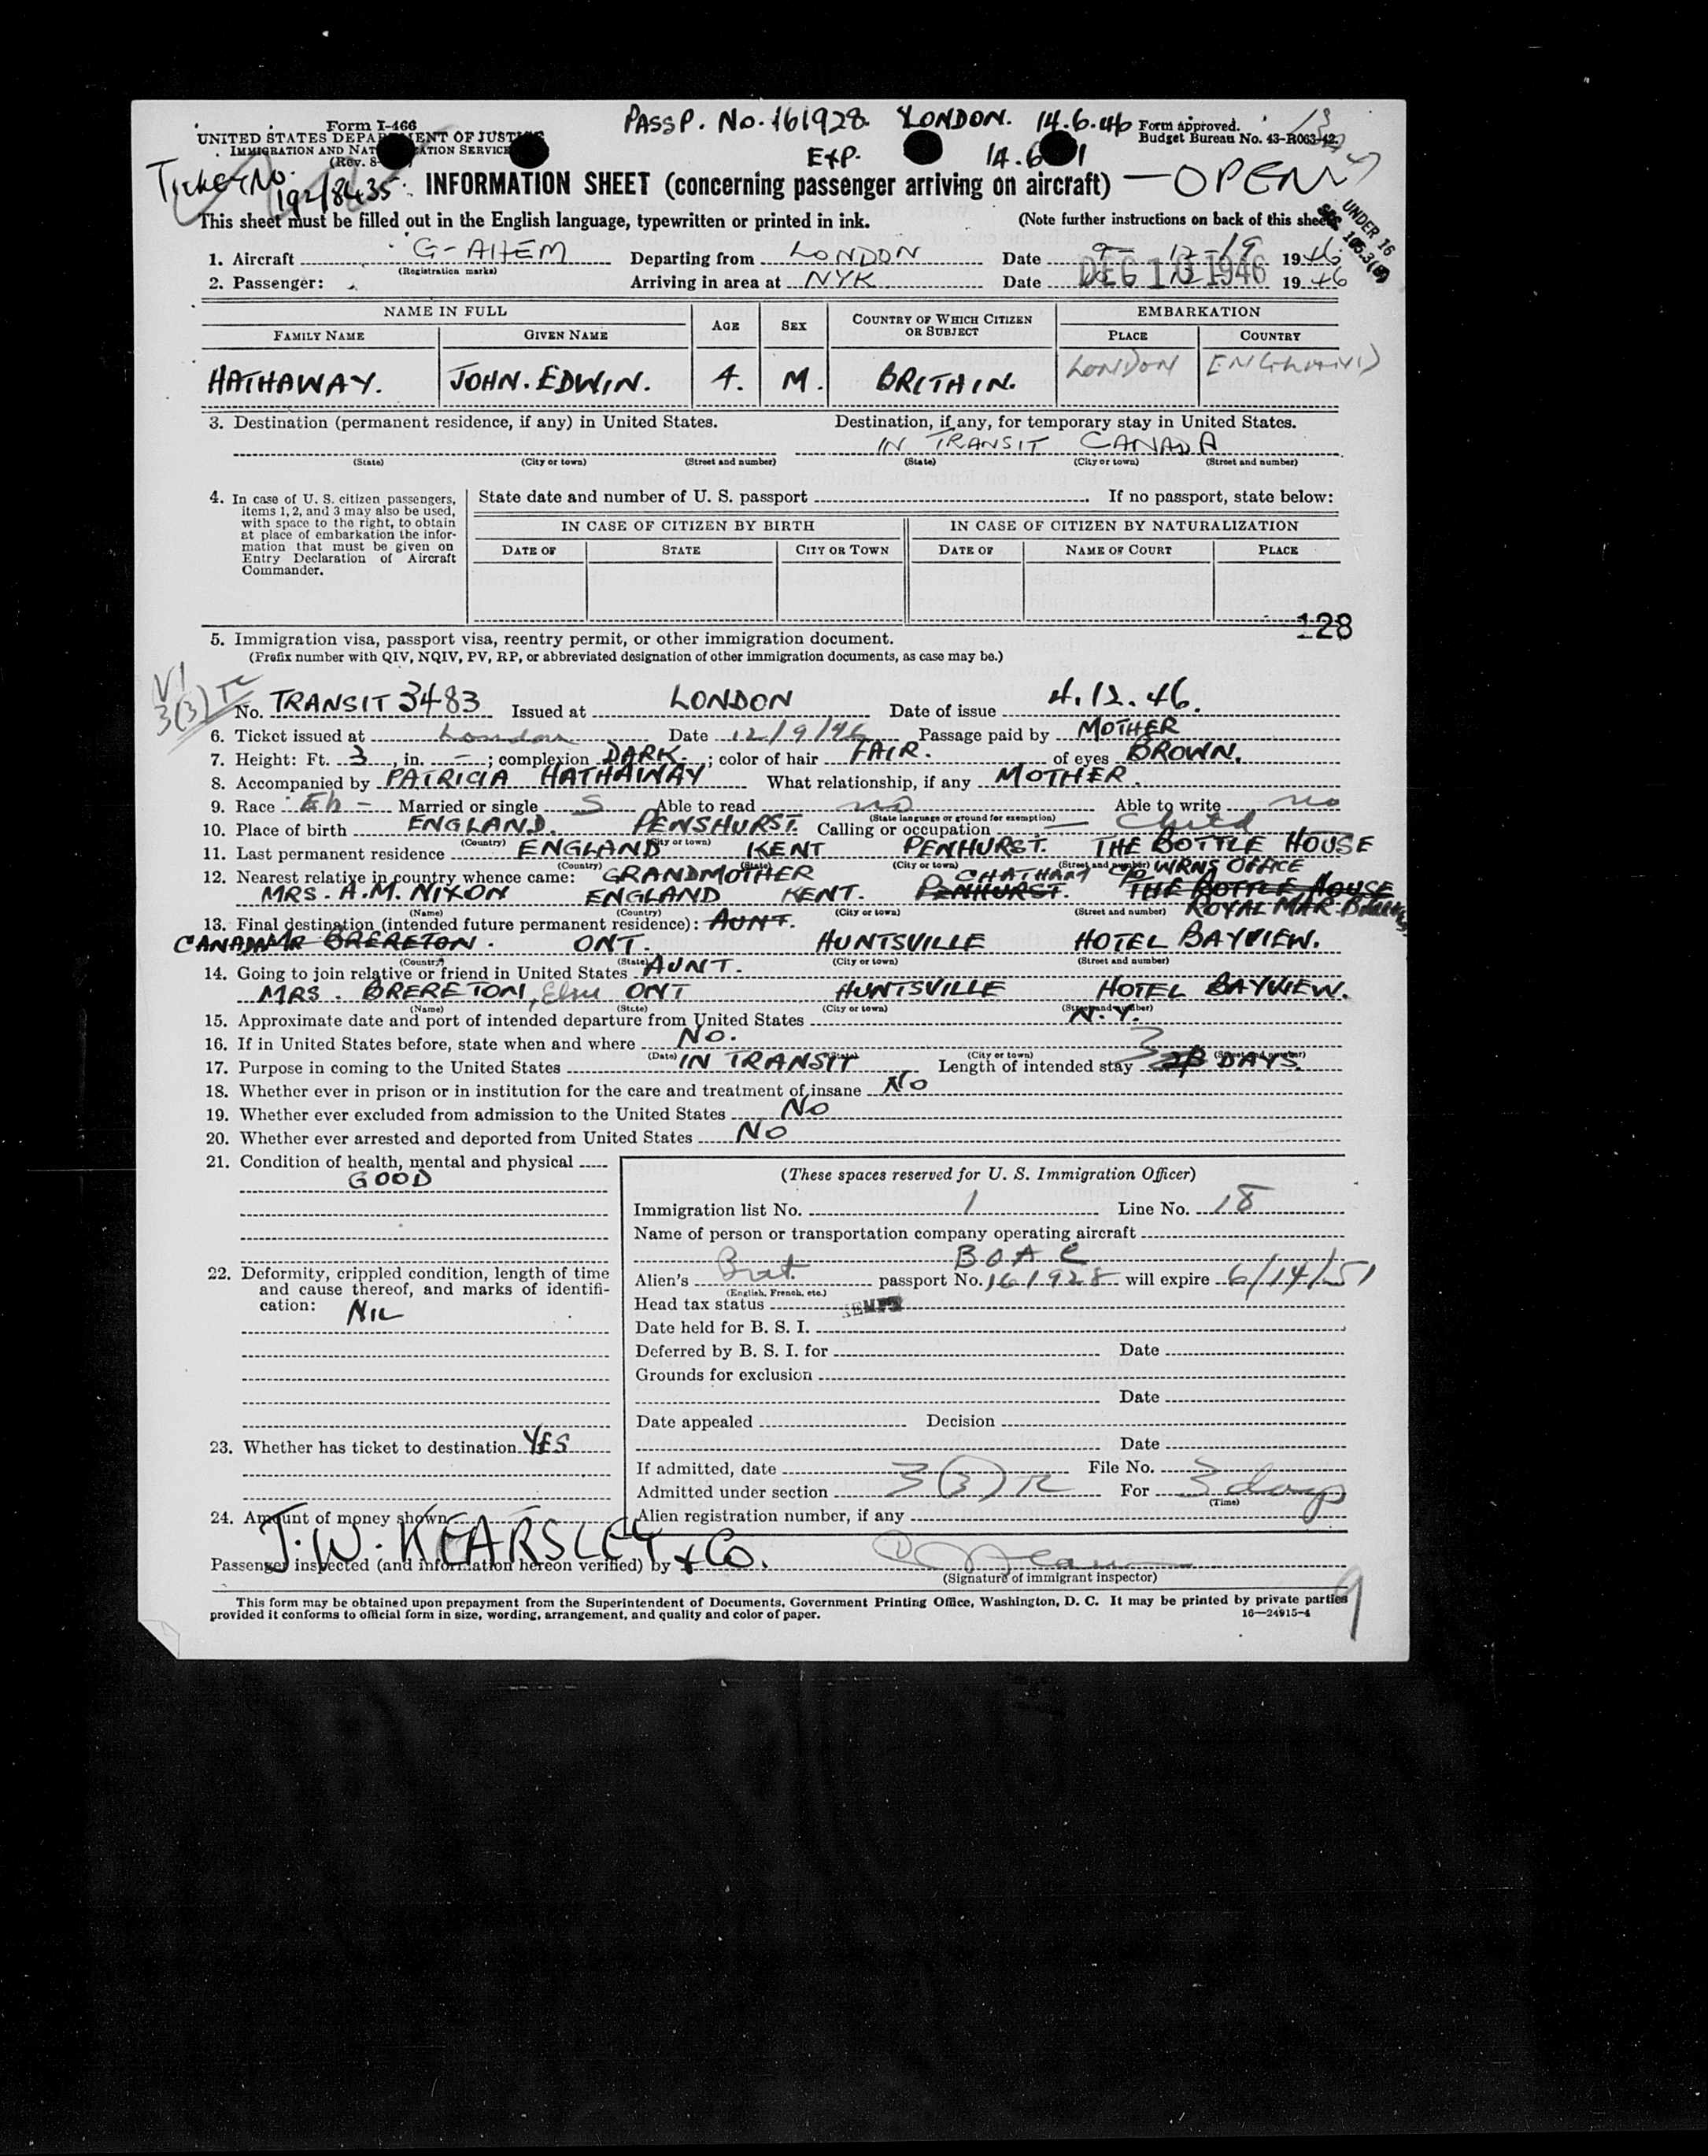 Form I-466
UNITED STATES DEPARTMENT OF JUSTICE
IMMIGRATION AND NATURALIZATION SERVICE
(Rev. 8-
PASSP. No. 161928. LONDON. 14.6.46
EXP. 14.6. 1
Form approved.
Budget Bureau No. 43-R063-42.
TICKET No.
192/8435.
INFORMATION SHEET (concerning passenger arriving on aircraft) — OPEN
This sheet must be filled out in the English language, typewritten or printed in ink. (Note further instructions on back of this sheet)
UNDER 16
SEC 105.3(B)
1. Aircraft G-AHEM Departing from LONDON Date 9- 12-19 1946.
(Registration marks)
2. Passenger: Arriving in area at NYK Date DEC 10 1946 1946
NAME IN FULL AGE SEX COUNTRY OF WHICH CITIZEN OR SUBJECT EMBARKATION
FAMILY NAME GIVEN NAME PLACE COUNTRY
HATHAWAY. JOHN. EDWIN. 4. M. BRITAIN. LONDON ENGLAND
3. Destination (permanent residence, if any) in United States. Destination, if any, for temporary stay in United States.
IN TRANSIT CANADA
(State) (City or town) (Street and number) (State) (City or town) (Street and number)
4. In case of U. S. citizen passengers, items 1, 2, and 3 may also be used, with space to the right, to obtain at place of embarkation the information that must be given on Entry Declaration of Aircraft Commander.
State date and number of U. S. passport If no passport, state below:
IN CASE OF CITIZEN BY BIRTH IN CASE OF CITIZEN BY NATURALIZATION
DATE OF STATE CITY OR TOWN DATE OF NAME OF COURT PLACE
128
5. Immigration visa, passport visa, reentry permit, or other immigration document.
(Prefix number with QIV, NQIV, PV, RP, or abbreviated designation of other immigration documents, as case may be.)
V1
3(3) TC
No. TRANSIT 3483 Issued at LONDON Date of issue 4.12.46.
6. Ticket issued at London Date 12/9/46 Passage paid by MOTHER
7. Height: Ft. 3, in. -; complexion DARK; color of hair FAIR. of eyes BROWN.
8. Accompanied by PATRICIA HATHAWAY What relationship, if any MOTHER.
9. Race Eh - Married or single S Able to read no Able to write no
(State language or ground for exemption)
10. Place of birth ENGLAND. PENSHURST. Calling or occupation — Child
(Country) (City or town)
11. Last permanent residence ENGLAND KENT PENHURST. THE BOTTLE HOUSE
(Country) (State) (City or town) (Street and number)
12. Nearest relative in country whence came: GRANDMOTHER CHATHAM c/o WRNS OFFICE
MRS. A.M. NIXON ENGLAND KENT. PENHURST. THE BOTTLE HOUSE
(Name) (Country) (City or town) (Street and number) ROYAL MAR.
13. Final destination (intended future permanent residence): AUNT.
CANADA MR BRERETON. ONT. HUNTSVILLE HOTEL BAYVIEW.
(Country) (State) (City or town) (Street and number)
14. Going to join relative or friend in United States AUNT.
MRS. BRERETON, ONT HUNTSVILLE HOTEL BAYVIEW.
(Name) (State) (City or town) (Street and number)
15. Approximate date and port of intended departure from United States N.Y.
16. If in United States before, state when and where NO.
(Date) (State) (City or town) (Street and number)
17. Purpose in coming to the United States IN TRANSIT Length of intended stay 3 DAYS.
18. Whether ever in prison or in institution for the care and treatment of insane NO
19. Whether ever excluded from admission to the United States NO
20. Whether ever arrested and deported from United States NO
21. Condition of health, mental and physical
GOOD
22. Deformity, crippled condition, length of time and cause thereof, and marks of identification: NIL
23. Whether has ticket to destination YES
24. Amount of money shown
(These spaces reserved for U. S. Immigration Officer)
Immigration list No. 1 Line No. 18
Name of person or transportation company operating aircraft
BOAC
Alien's Brit. passport No. 161928 will expire 6/14/51
(English, French, etc.)
Head tax status
Date held for B. S. I.
Deferred by B. S. I. for Date
Grounds for exclusion
Date
Date appealed Decision
Date
If admitted, date File No.
Admitted under section 3(3) TC For 3 days
(Time)
Alien registration number, if any
J. W. KEARSLEY & Co.
Passenger inspected (and information hereon verified) by
(Signature of immigrant inspector)
This form may be obtained upon prepayment from the Superintendent of Documents, Government Printing Office, Washington, D. C. It may be printed by private parties
provided it conforms to official form in size, wording, arrangement, and quality and color of paper. 16—24915-4
9